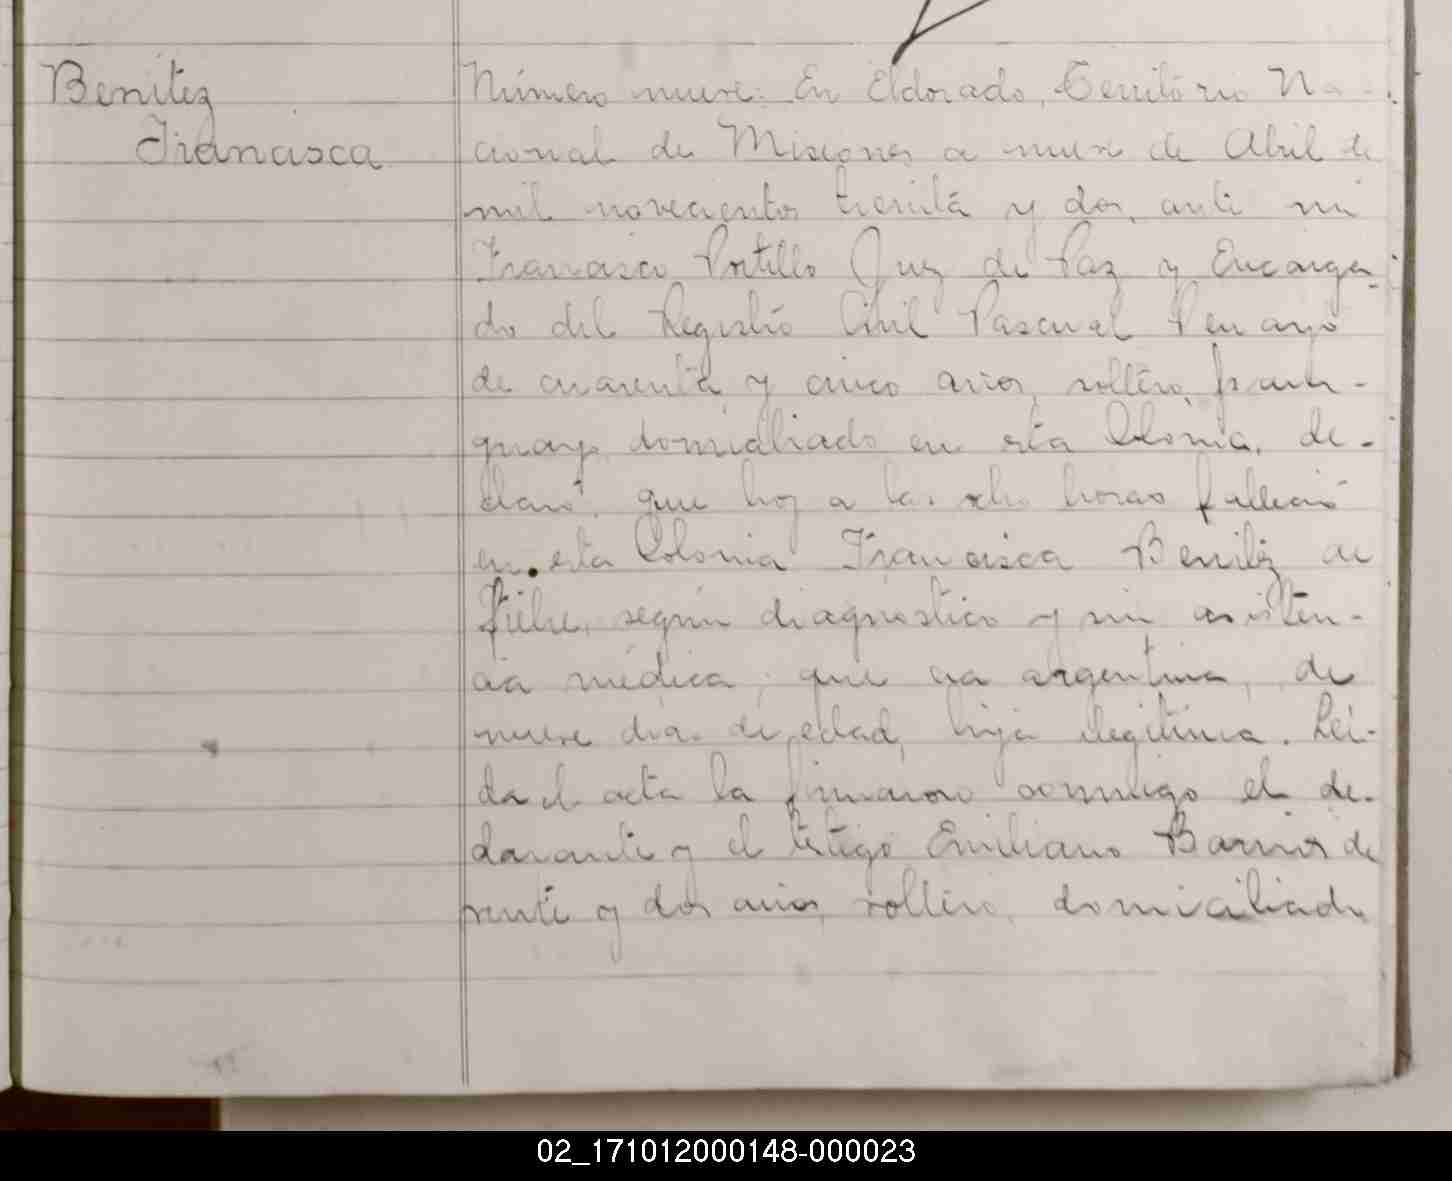 Benitez
Francisca
Número nueve: En Eldorado, Territorio Na-
cional de Misiones a nueve de Abril de
mil novecientos treinta y dos, ante mi
Francisco Portillo Juez de Paz y Encarga-
do del Registro Civil Pascual
de cuarenta y cinco años, soltero, para-
guayo domiciliado en esta Colonia, de-
claró: que hoy a las ocho horas falleció
en esta Colonia Francisca Benitez de
fiebre, según diagnostico y sin asisten-
cia médica; que era argentina, de
nueve dias de edad, hija ilegitima. Lei-
da el acta la firmaron conmigo el de-
clarante y el testigo Emiliano Barrios de
veinte y dos años, soltero, domiciliado
02_171012000148-000023